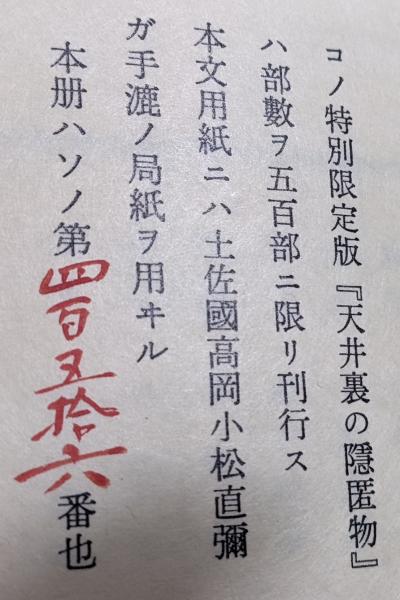 コノ特別限定版『天井裏の隱匿物』
ハ部數ヲ五百部ニ限リ刊行ス
本文用紙ニハ土佐國高岡小松直彌
ガ手漉ノ局紙ヲ用ヰル
本册ハソノ第四百五拾六番也